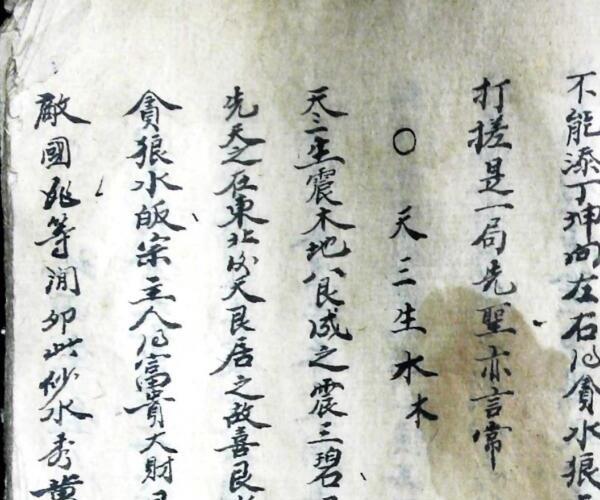 不能添丁坤向左右得貪水狼
打搓是一局先聖亦言常
○ 天三生水木
天三生震木地八艮成之震三碧
先天之在東北後天艮居之故喜艮
貪狼水皈宗主人得富貴大財
敵國非等閑卯此妙水秀